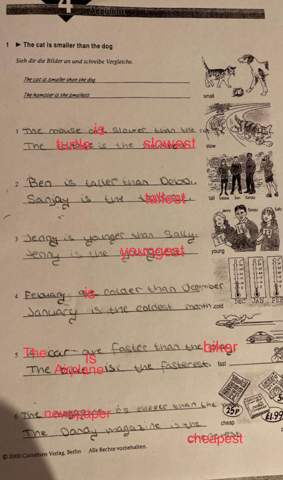 4
1 ► The cat is smaller than the dog
Sieh dir die Bilder an und schreibe Vergleiche.
The cat is smaller than the dog.
The hamster is the smallest.
small
1 The mouse is slower than the
The turtle is the slowest
slow
2 Ben is taller than Debbi.
Sanjay is the tallest.
tall Debbie Ben Sanjay
3 Jenny is younger than Sally.
Jenny is the youngest
young
4 February is colder than December
January is the coldest month.
cold
DEC JAN FEB
5 The car are faster than the biker
The Airplane is the fasterest.
fast
6 The newspaper is cheeper than the
The Dandy magazine is the cheapest
cheap
25p
£1.99
© 2000 Cornelsen Verlag, Berlin Alle Rechte vorbehalten.